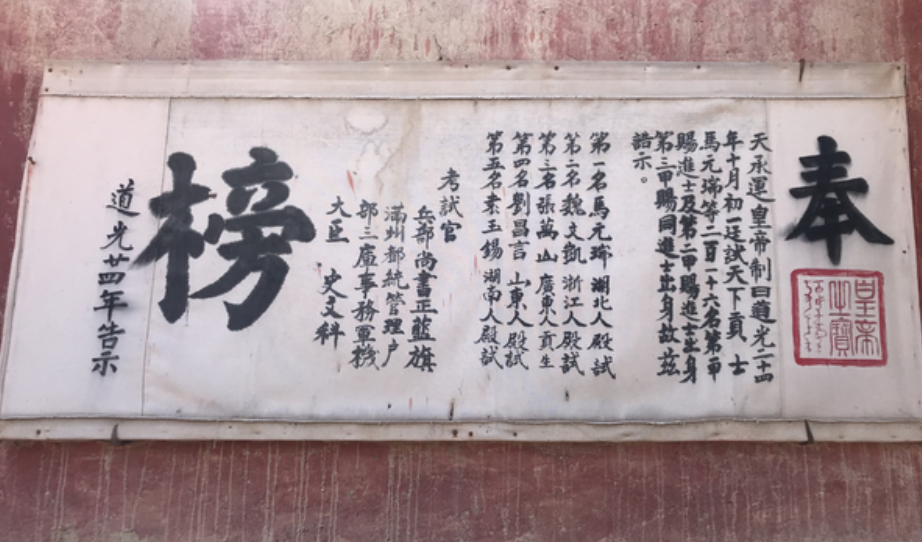 奉
皇帝之寶
天承運皇帝制曰道光二十四
年十月初一廷試天下貢士
馬元瑞等二百一十六名第一甲
賜進士及第二甲賜進士出身
第三甲賜同進士出身故茲
誥示。
第一名馬元瑞 湖北人殿試
第二名魏文凱 浙江人殿試
第三名張萬山 廣東人貢生
第四名劉昌言 山東人殿試
第五名袁玉錫 湖南人殿試
考試官
兵部尚書正藍旗
滿州都統管理户
部三庫事務軍機
大臣 史文科
榜
道光廿四年告示